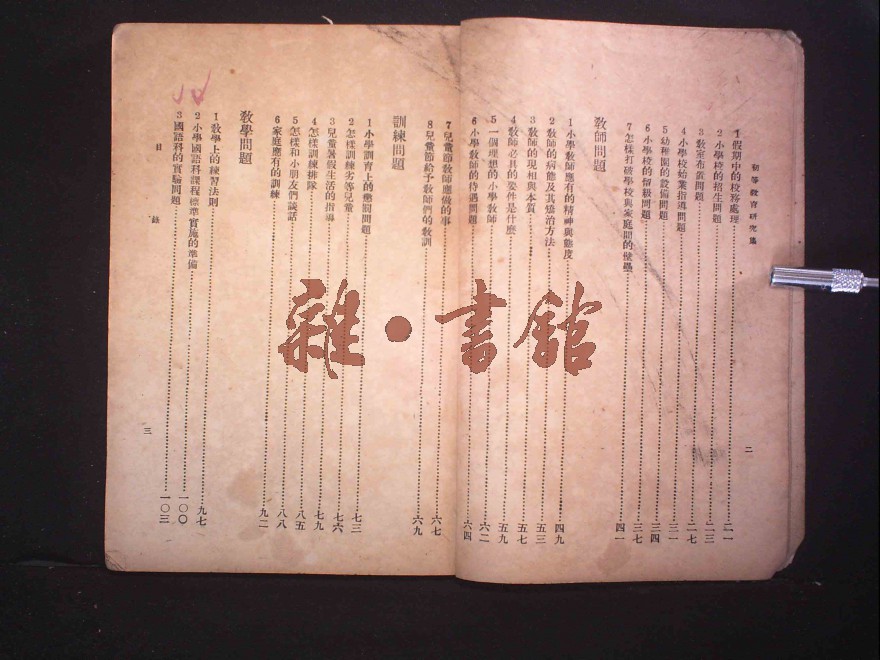 初等教育研究集
二
1 假期中的校務處理……二一
2 小學校的招生問題……二三
3 教室布置問題……二七
4 小學校始業指導問題……三一
5 幼稚園的設備問題……三四
6 小學校的留級問題……三七
7 怎樣打破學校與家庭間的壁壘……四一
教師問題
1 小學教師應有的精神與態度……四九
2 教師的病態及其矯治方法……五三
3 教師的現相與本質……五七
4 教師必具的要件是什麼……五九
5 一個理想的小學教師……六二
6 小學教師的待遇問題……六四
7 兒童節教師應做的事……六七
8 兒童節給予教師們的教訓……六九
訓練問題
1 小學訓育上的懲罰問題……七三
2 怎樣訓練劣等兒童……七六
3 兒童暑假生活的指導……七九
4 怎樣訓練排隊……八五
5 怎樣和小朋友們談話……八八
6 家庭應有的訓練……九二
教學問題
1 教學上的練習法則……九七
2 小學國語科課程標準實施的準備……一〇〇
3 國語科的實驗問題……一〇三
目錄
三
雜·書館